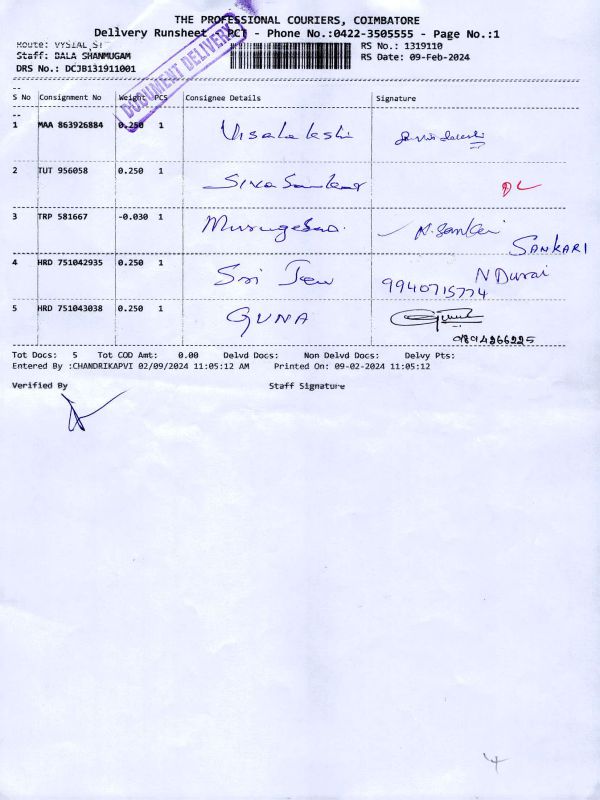 THE PROFESSIONAL COURIERS, COIMBATORE
Delivery Runsheet - PCT - Phone No.:0422-3505555 - Page No.:1
Route: VYSIAL ST
RS No.: 1319110
Staff: BALA SHANMUGAM
RS Date: 09-Feb-2024
DRS No.: DCJB131911001
DOCUMENT DELIVERY
S No Consignment No Weight PCS Consignee Details Signature
1 MAA 863926884 0.250 1 Visalakshi
2 TUT 956058 0.250 1 Sivasankar
3 TRP 581667 -0.030 1 Murugesan. N. Sankari
SANKARI
4 HRD 751042935 0.250 1 Sri Jew N Durai
9940715774
5 HRD 751043038 0.250 1 GUNA
Tot Docs: 5 Tot COD Amt: 0.00 Delvd Docs: Non Delvd Docs: Delvy Pts:
Entered By :CHANDRIKAPVI 02/09/2024 11:05:12 AM Printed On: 09-02-2024 11:05:12
Verified By Staff Signature
4